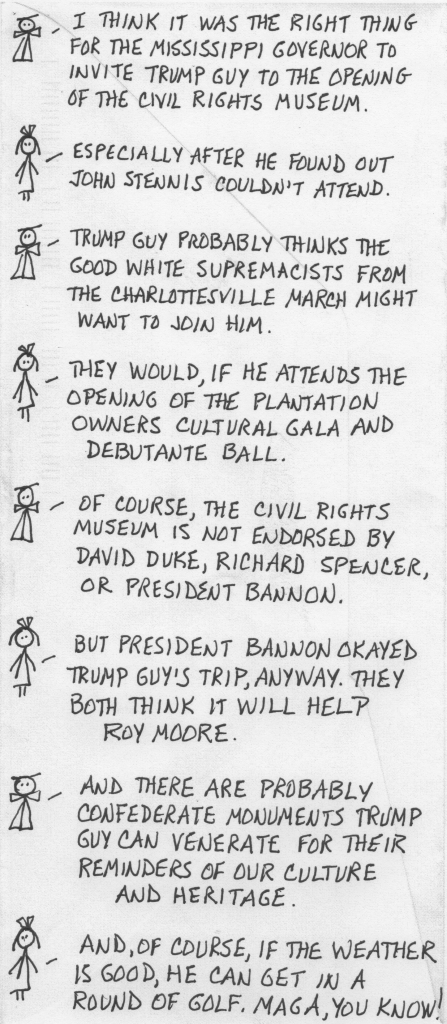 I THINK IT WAS THE RIGHT THING
FOR THE MISSISSIPPI GOVERNOR TO
INVITE TRUMP GUY TO THE OPENING
OF THE CIVIL RIGHTS MUSEUM.
ESPECIALLY AFTER HE FOUND OUT
JOHN STENNIS COULDN'T ATTEND.
TRUMP GUY PROBABLY THINKS THE
GOOD WHITE SUPREMACISTS FROM
THE CHARLOTTESVILLE MARCH MIGHT
WANT TO JOIN HIM.
THEY WOULD, IF HE ATTENDS THE
OPENING OF THE PLANTATION
OWNERS CULTURAL GALA AND
DEBUTANTE BALL.
OF COURSE, THE CIVIL RIGHTS
MUSEUM IS NOT ENDORSED BY
DAVID DUKE, RICHARD SPENCER,
OR PRESIDENT BANNON.
BUT PRESIDENT BANNON OKAYED
TRUMP GUY'S TRIP, ANYWAY. THEY
BOTH THINK IT WILL HELP
ROY MOORE.
AND THERE ARE PROBABLY
CONFEDERATE MONUMENTS TRUMP
GUY CAN VENERATE FOR THEIR
REMINDERS OF OUR CULTURE
AND HERITAGE.
AND, OF COURSE, IF THE WEATHER
IS GOOD, HE CAN GET IN A
ROUND OF GOLF. MAGA, YOU KNOW!